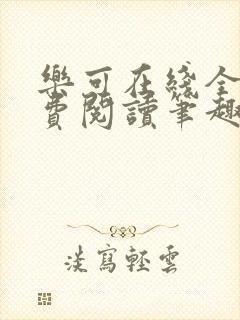 樂可在綫全
費閱讀筆趣
淡寫輕雲